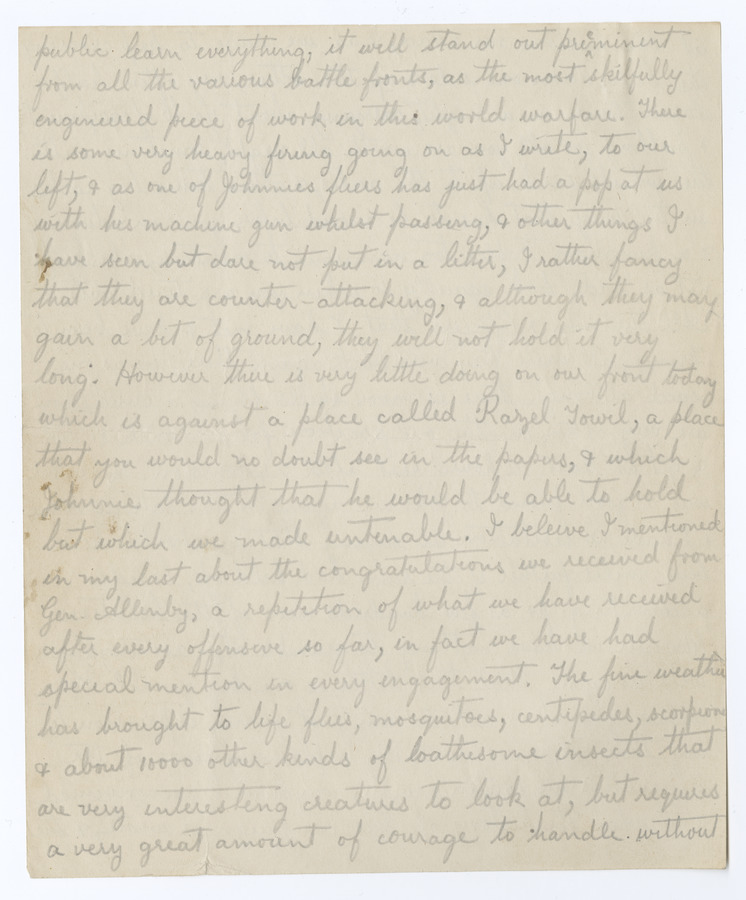 public learn everything, it will stand out preminent
from all the various battle fronts, as the most skilfully
engineered piece of work in this world warfare. There
is some very heavy firing going on as I write, to our
left, & as one of Johnnies fliers has just had a pop at us
with his machine gun whilst passing, & other things I
have seen but dare not put in a litter, I rather fancy
that they are counter-attacking, & although they may
gain a bit of ground, they will not hold it very
long. However there is very little doing on our front today
which is against a place called Razel Towil, a place
that you would no doubt see in the papers, & which
Johnnie thought that he would be able to hold
but which we made untenable. I beleive I mentioned
in my last about the congratulations we received from
Gen. Allenby, a repetition of what we have received
after every offensive so far, in fact we have had
special mention in every engagement. The fine weather
has brought to life flies, mosquitoes, centipedes, scorpions
& about 10000 other kinds of loathesome insects that
are very interesting creatures to look at, but requires
a very great amount of courage to handle without